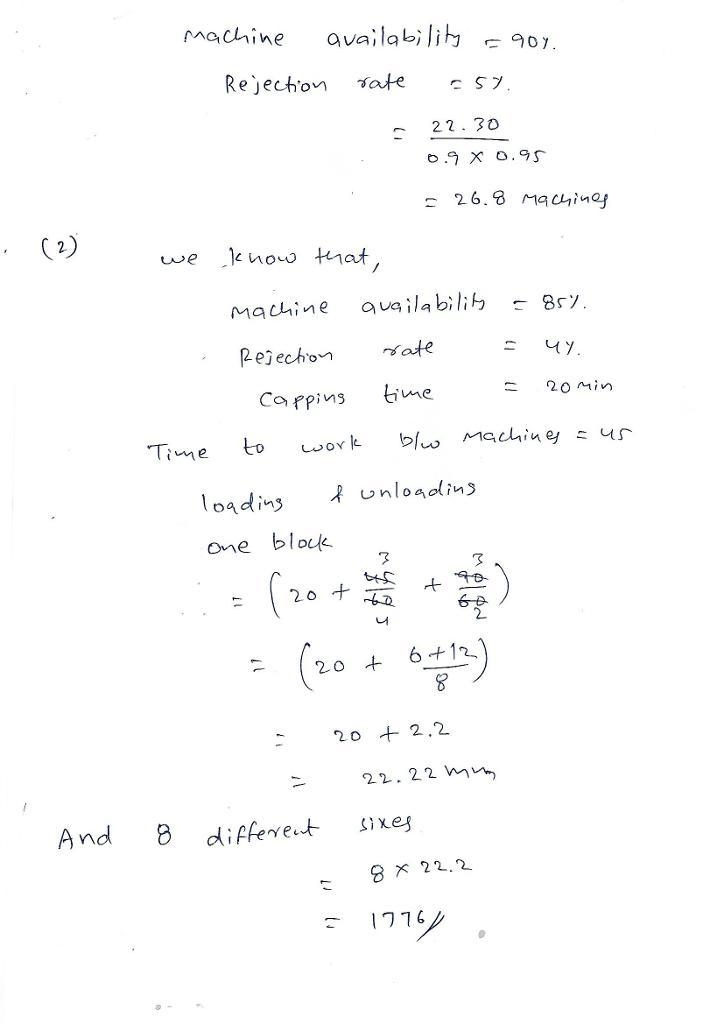 Machine availability = 90%.
Rejection rate = 5%.
= 22.30 / 0.9 × 0.95
= 26.8 Machines
(2) we know that,
Machine availability = 85%.
Rejection rate = 4%.
Capping time = 20 min
Time to work b/w machines = 45
loading & unloading
one block
= (20 + 45/60 3/4 + 90/60 3/2)
= (20 + 6+12/8)
= 20 + 2.2
= 22.22 mm
And 8 different sixes
= 8 × 22.2
= 1776//